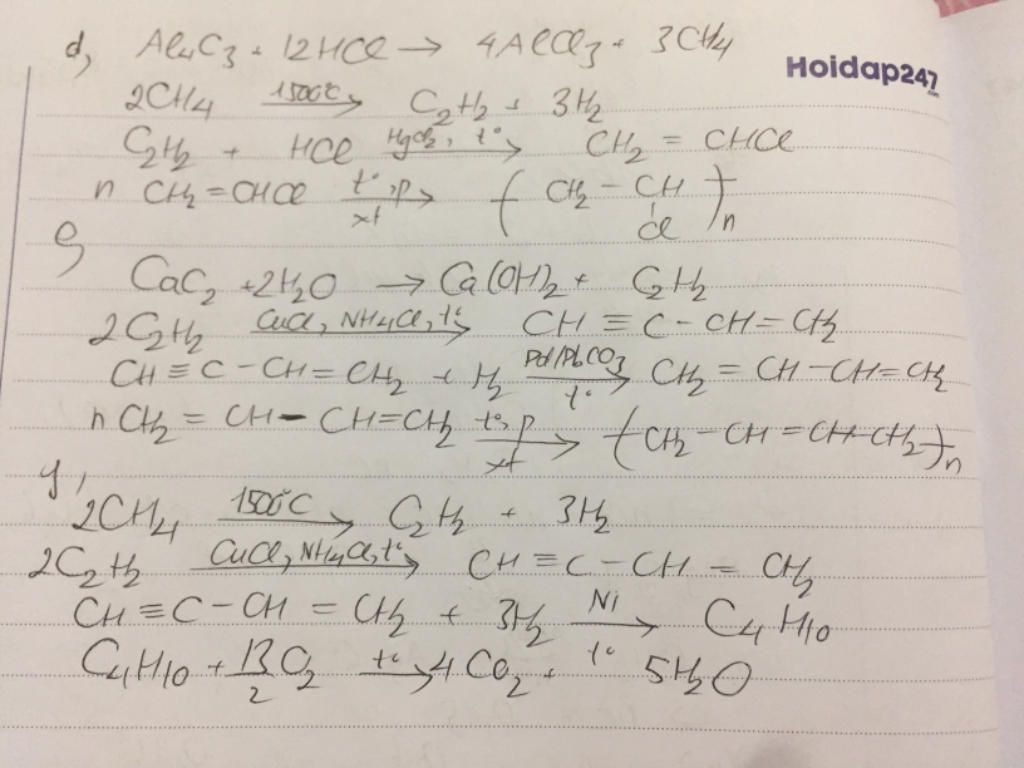 d, Al₄C₃ + 12HCl → 4AlCl₃ + 3CH₄
Hoidap247.com
2CH₄ 1500°C → C₂H₂ + 3H₂
C₂H₂ + HCl HgCl₂, t° → CH₂ = CHCl
n CH₂ = CHCl t°, p xt → ( CH₂ - CH )n
Cl
e,
CaC₂ + 2H₂O → Ca(OH)₂ + C₂H₂
2C₂H₂ CuCl, NH₄Cl, t° → CH ≡ C - CH = CH₂
CH ≡ C - CH = CH₂ + H₂ Pd/PbCO₃ t° → CH₂ = CH - CH = CH₂
n CH₂ = CH - CH = CH₂ t°, p xt → ( CH₂ - CH = CH - CH₂ )n
y,
2CH₄ 1500°C → C₂H₂ + 3H₂
2C₂H₂ CuCl, NH₄Cl, t° → CH ≡ C - CH = CH₂
CH ≡ C - CH = CH₂ + 3H₂ Ni t° → C₄H₁₀
C₄H₁₀ + 13/2 O₂ t° → 4CO₂ + 5H₂O